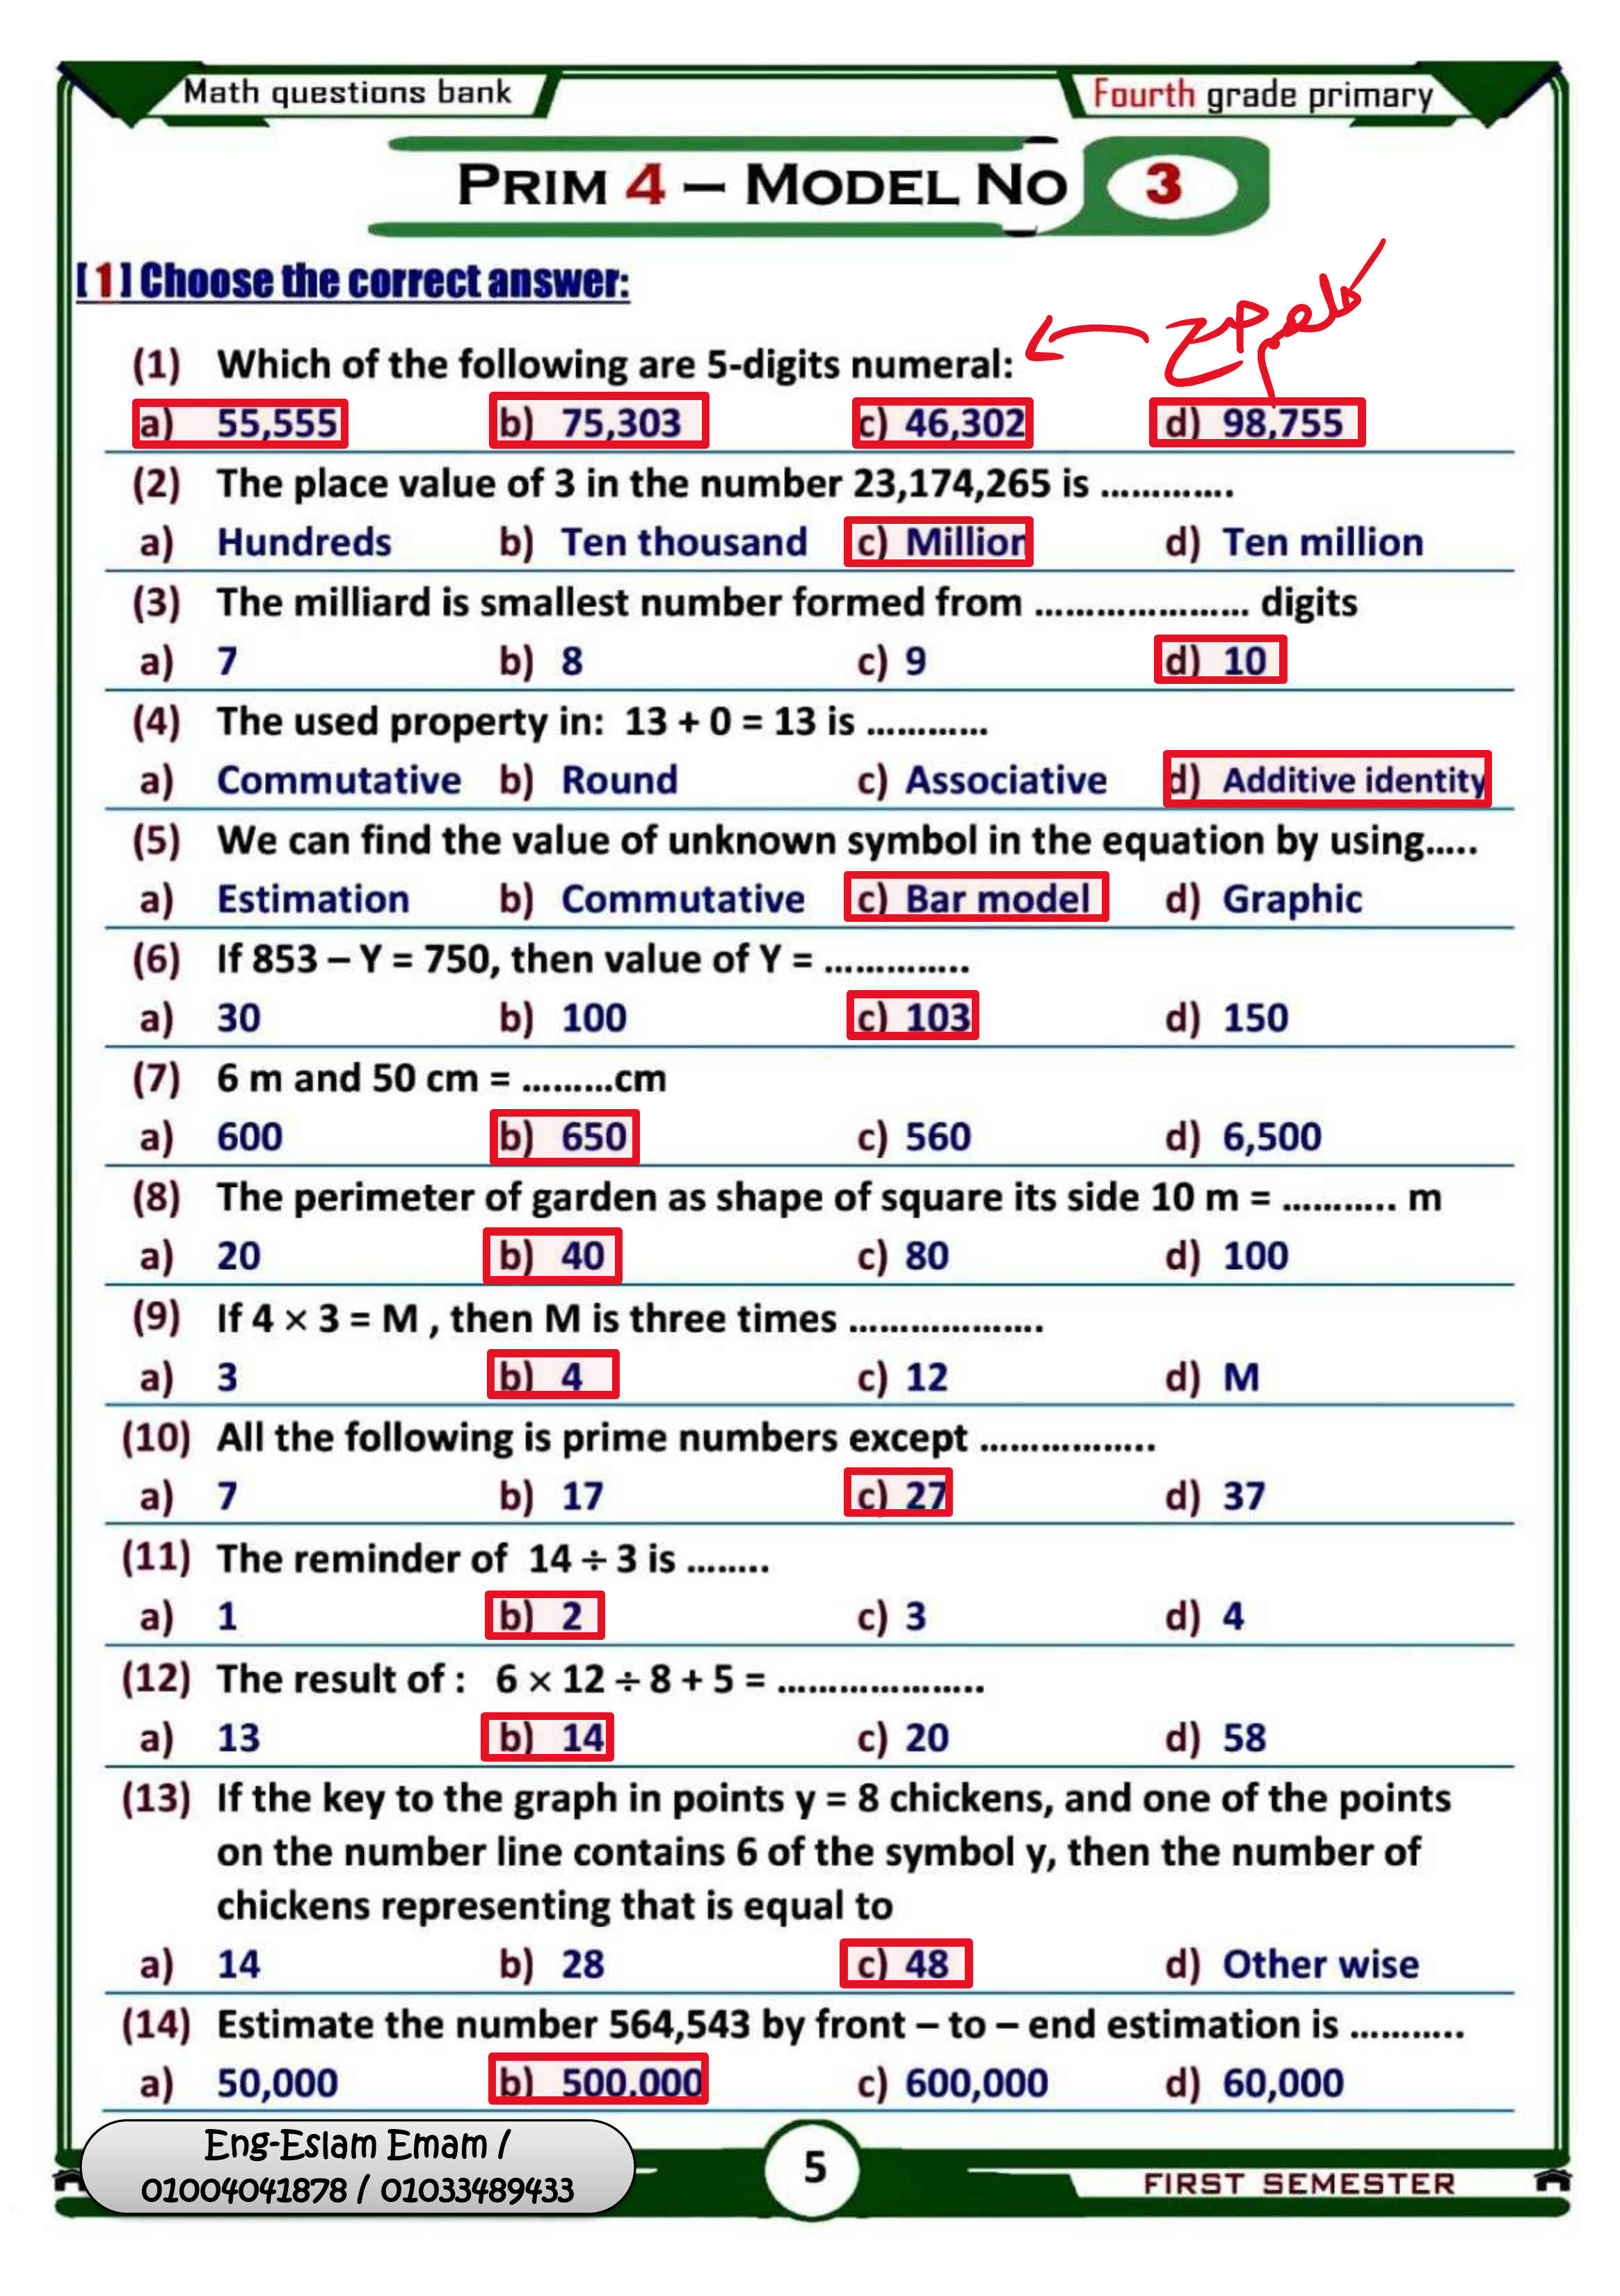 Math questions bank
Fourth grade primary
PRIM 4 – MODEL NO 3
[1] Choose the correct answer:
كلهم صح
(1) Which of the following are 5-digits numeral:
a) 55,555 b) 75,303 c) 46,302 d) 98,755
(2) The place value of 3 in the number 23,174,265 is .............
a) Hundreds b) Ten thousand c) Million d) Ten million
(3) The milliard is smallest number formed from ..................... digits
a) 7 b) 8 c) 9 d) 10
(4) The used property in: 13 + 0 = 13 is ............
a) Commutative b) Round c) Associative d) Additive identity
(5) We can find the value of unknown symbol in the equation by using.....
a) Estimation b) Commutative c) Bar model d) Graphic
(6) If 853 – Y = 750, then value of Y = ..............
a) 30 b) 100 c) 103 d) 150
(7) 6 m and 50 cm = .........cm
a) 600 b) 650 c) 560 d) 6,500
(8) The perimeter of garden as shape of square its side 10 m = ........... m
a) 20 b) 40 c) 80 d) 100
(9) If 4 × 3 = M , then M is three times ...................
a) 3 b) 4 c) 12 d) M
(10) All the following is prime numbers except .................
a) 7 b) 17 c) 27 d) 37
(11) The reminder of 14 ÷ 3 is ........
a) 1 b) 2 c) 3 d) 4
(12) The result of : 6 × 12 ÷ 8 + 5 = ....................
a) 13 b) 14 c) 20 d) 58
(13) If the key to the graph in points y = 8 chickens, and one of the points
on the number line contains 6 of the symbol y, then the number of
chickens representing that is equal to
a) 14 b) 28 c) 48 d) Other wise
(14) Estimate the number 564,543 by front – to – end estimation is ...........
a) 50,000 b) 500,000 c) 600,000 d) 60,000
Eng-Eslam Emam /
01004041878 / 01033489433
5
FIRST SEMESTER